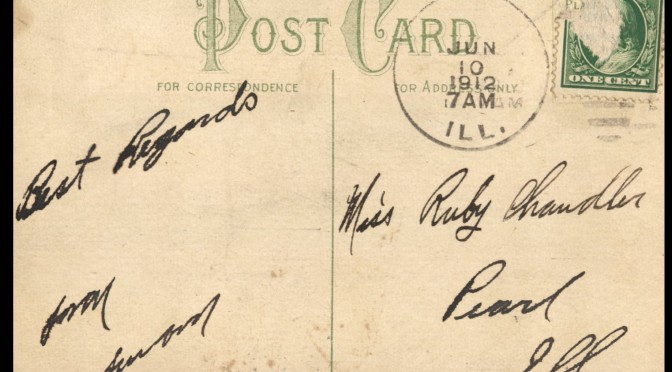 POST CARD
FOR CORRESPONDENCE
FOR ADDRESS ONLY
JUN
10
1912
7AM
ILL.
ONE CENT
Best Regards
from
Miss Ruby Chandler
Pearl
Ill